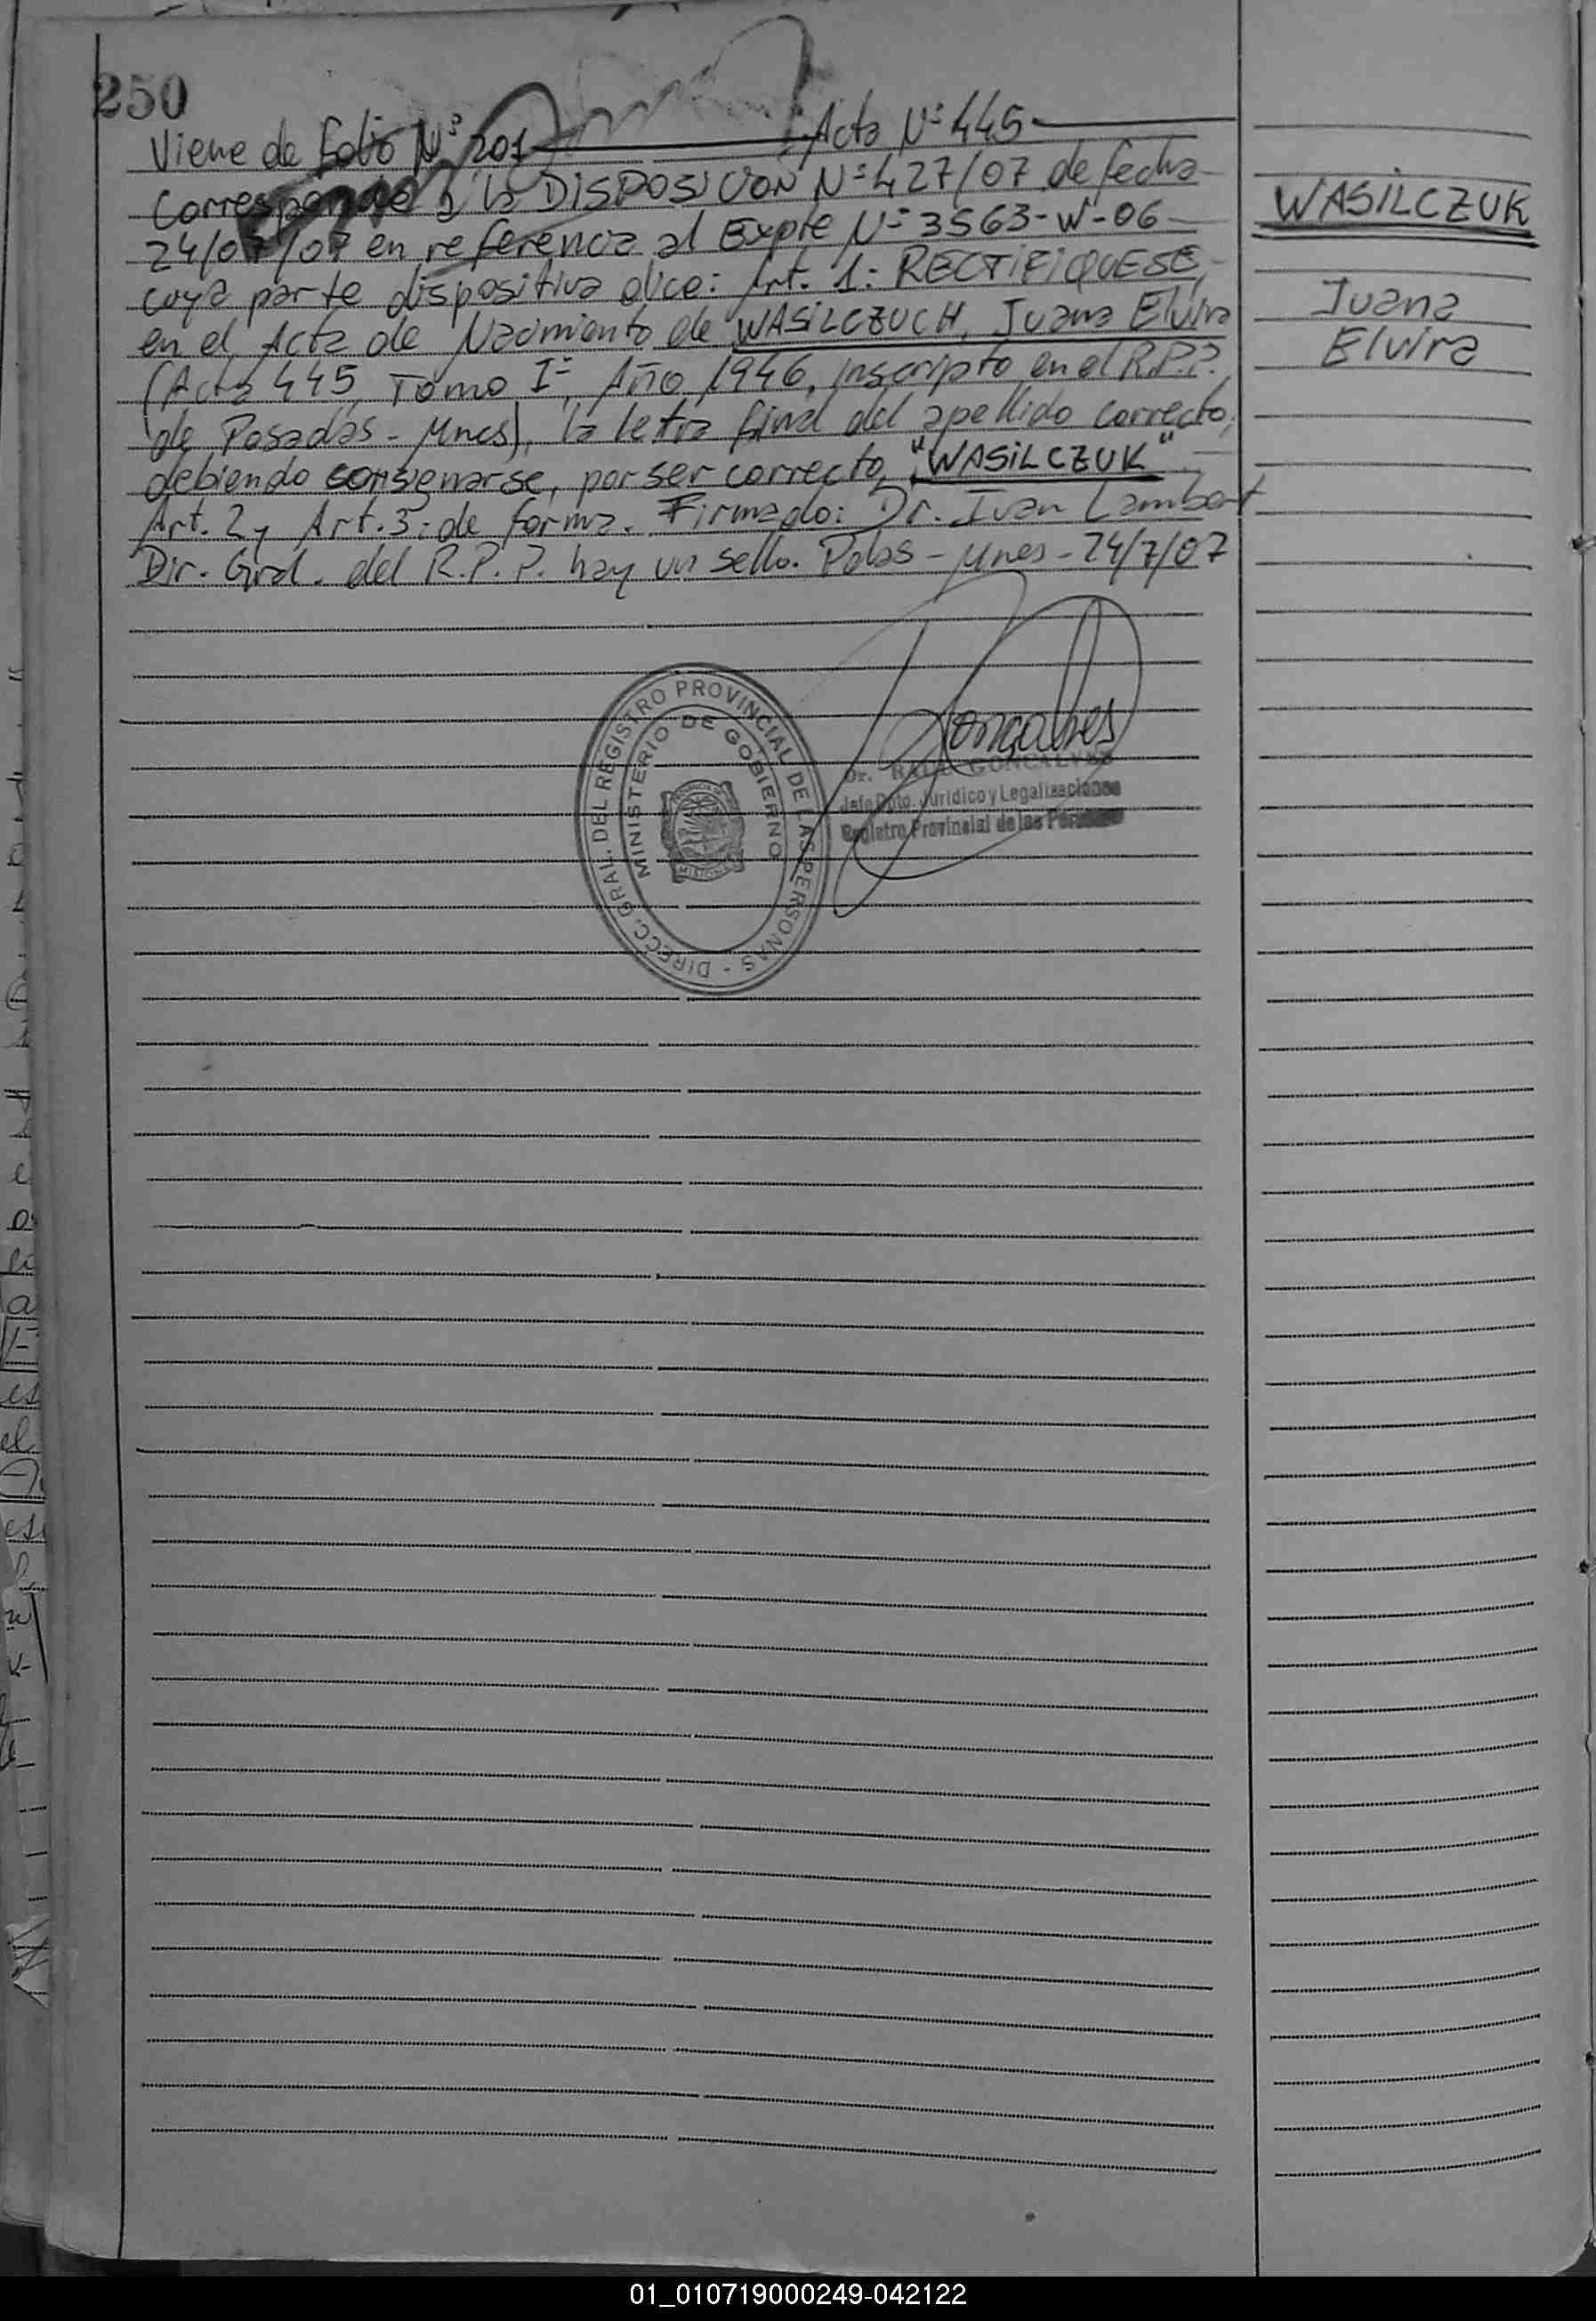 250
Viene de Folio Nº 201 Acta Nº 445
Corresponde a la DISPOSICION Nº 427/07 de fecha
24/07/07 en referencia al Expte Nº 3563-W-06
cuya parte dispositiva dice: Art. 1: RECTIFIQUESE,
en el Acta de Nacimiento de WASILCZUCH, Juana Elvira
(Acta 445, Tomo Iº, Año 1946, inscripto en el R.P.P.
de Posadas - Mnes), la letra final del apellido correcto,
debiendo consignarse, por ser correcto, "WASILCZUK"
Art. 2 y Art. 3: de forma. Firmado: Dr. Ivan Lambert
Dir. Gral. del R.P.P. hay un sello. Pdas - Mnes - 24/7/07
WASILCZUK
Juana
Elvira
DIRECC. GRAL. DEL REGISTRO PROVINCIAL DE LAS PERSONAS -
MINISTERIO DE GOBIERNO
MISIONES
Goncalves
Dr. RAUL GONCALVES
Jefe Dpto. Jurídico y Legalizaciones
Registro Provincial de las Personas
01_010719000249-042122